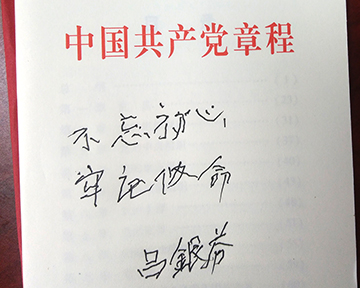 中国共产党章程
不忘初心,
牢记使命
吕銀芬